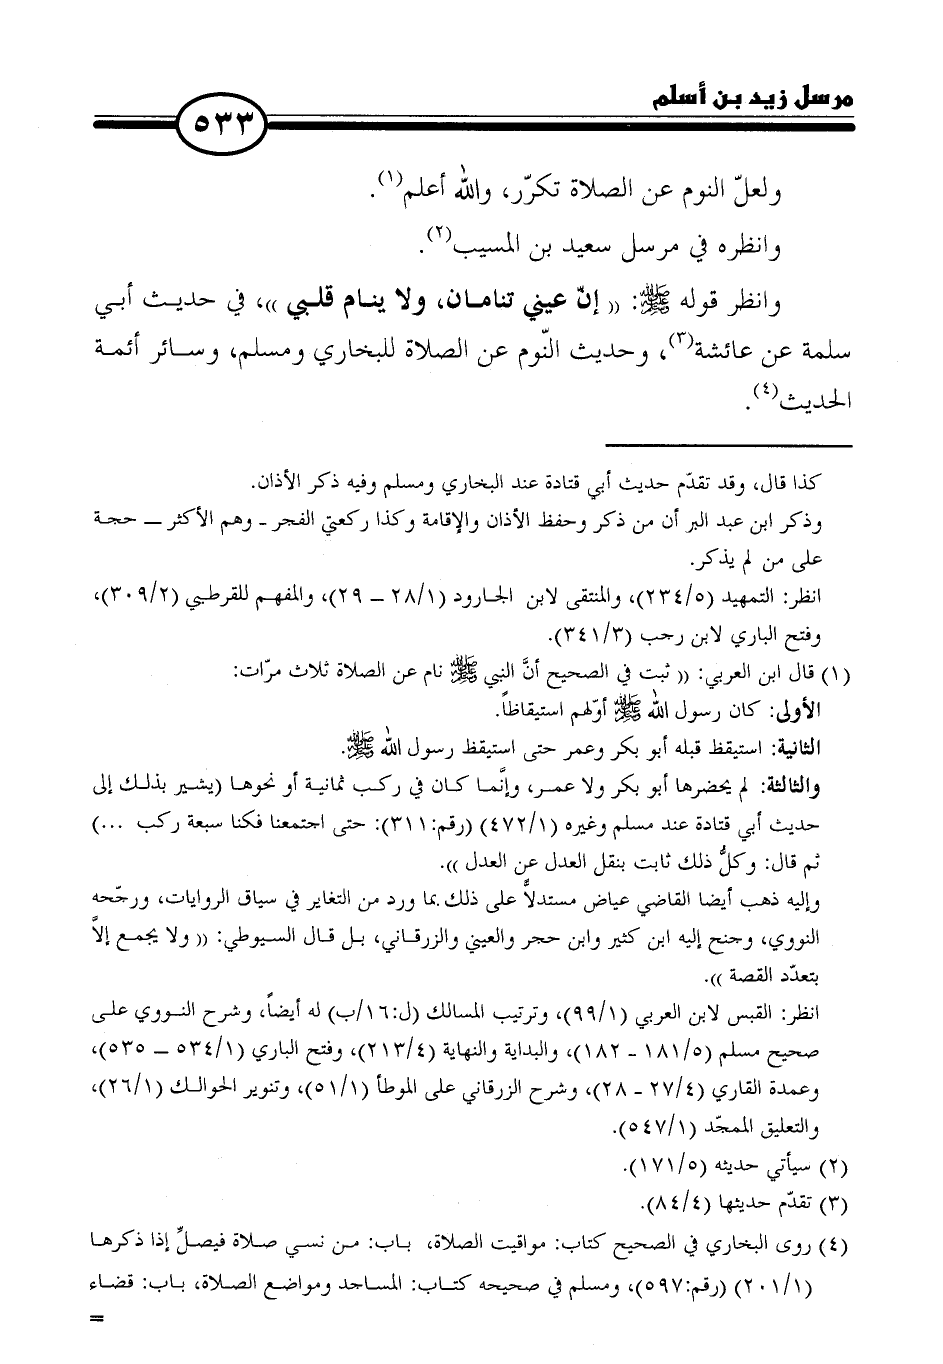 مرسل زيد بن أسلم
٥٣٣
ولعلّ النوم عن الصلاة تكرّر، والله أعلم(١).
وانظره في مرسل سعيد بن المسيب(٢).
وانظر قوله ﷺ: (( إنّ عيني تنامان، ولا ينام قلبي ))، في حديث أبي
سلمة عن عائشة(٣)، وحديث النّوم عن الصلاة للبخاري ومسلم، وسائر أئمة
الحديث(٤).
كذا قال، وقد تقدّم حديث أبي قتادة عند البخاري ومسلم وفيه ذكر الأذان.
وذكر ابن عبد البر أن من ذكر وحفظ الأذان والإقامة وكذا ركعتي الفجر - وهم الأكثر – حجة
على من لم يذكر.
انظر: التمهيد (٢٣٤/٥)، والمنتقى لابن الجارود (٢٨/١ – ٢٩)، والمفهم للقرطبي (٣٠٩/٢)،
وفتح الباري لابن رجب (٣٤١/٣).
(١) قال ابن العربي: (( ثبت في الصحيح أنَّ النبي ﷺ نام عن الصلاة ثلاث مرّات:
الأولى: كان رسول الله ﷺ أوّلهم استيقاظاً.
الثانية: استيقظ قبله أبو بكر وعمر حتى استيقظ رسول الله ﷺ.
والثالثة: لم يحضرها أبو بكر ولا عمر، وإنَّما كان في ركب ثمانية أو نحوها (يشير بذلك إلى
حديث أبي قتادة عند مسلم وغيره (٤٧٢/١) (رقم:٣١١): حتى اجتمعنا فكنا سبعة ركب ...)
ثم قال: وكلُّ ذلك ثابت بنقل العدل عن العدل )).
وإليه ذهب أيضا القاضي عياض مستدلاًّ على ذلك بما ورد من التغاير في سياق الروايات، ورجّحه
النووي، وجنح إليه ابن كثير وابن حجر والعيني والزرقاني، بل قال السيوطي: (( ولا يجمع إلاَّ
بتعدّد القصة )).
انظر: القبس لابن العربي (٩٩/١)، وترتيب المسالك (ل:١٦/ب) له أيضاً، وشرح النووي على
صحيح مسلم (١٨١/٥ - ١٨٢)، والبداية والنهاية (٢١٣/٤)، وفتح الباري (٥٣٤/١ – ٥٣٥)،
وعمدة القاري (٢٧/٤ - ٢٨)، وشرح الزرقاني على الموطأ (٥١/١)، وتنوير الحوالك (٢٦/١)،
والتعليق الممجّد (٥٤٧/١).
(٢) سيأتي حديثه (١٧١/٥).
(٣) تقدّم حديثها (٨٤/٤).
(٤) روى البخاري في الصحيح كتاب: مواقيت الصلاة، باب: من نسي صلاة فيصلِّ إذا ذكرها
(٢٠١/١) (رقم:٥٩٧)، ومسلم في صحيحه كتاب: المساجد ومواضع الصلاة، باب: قضاء
=